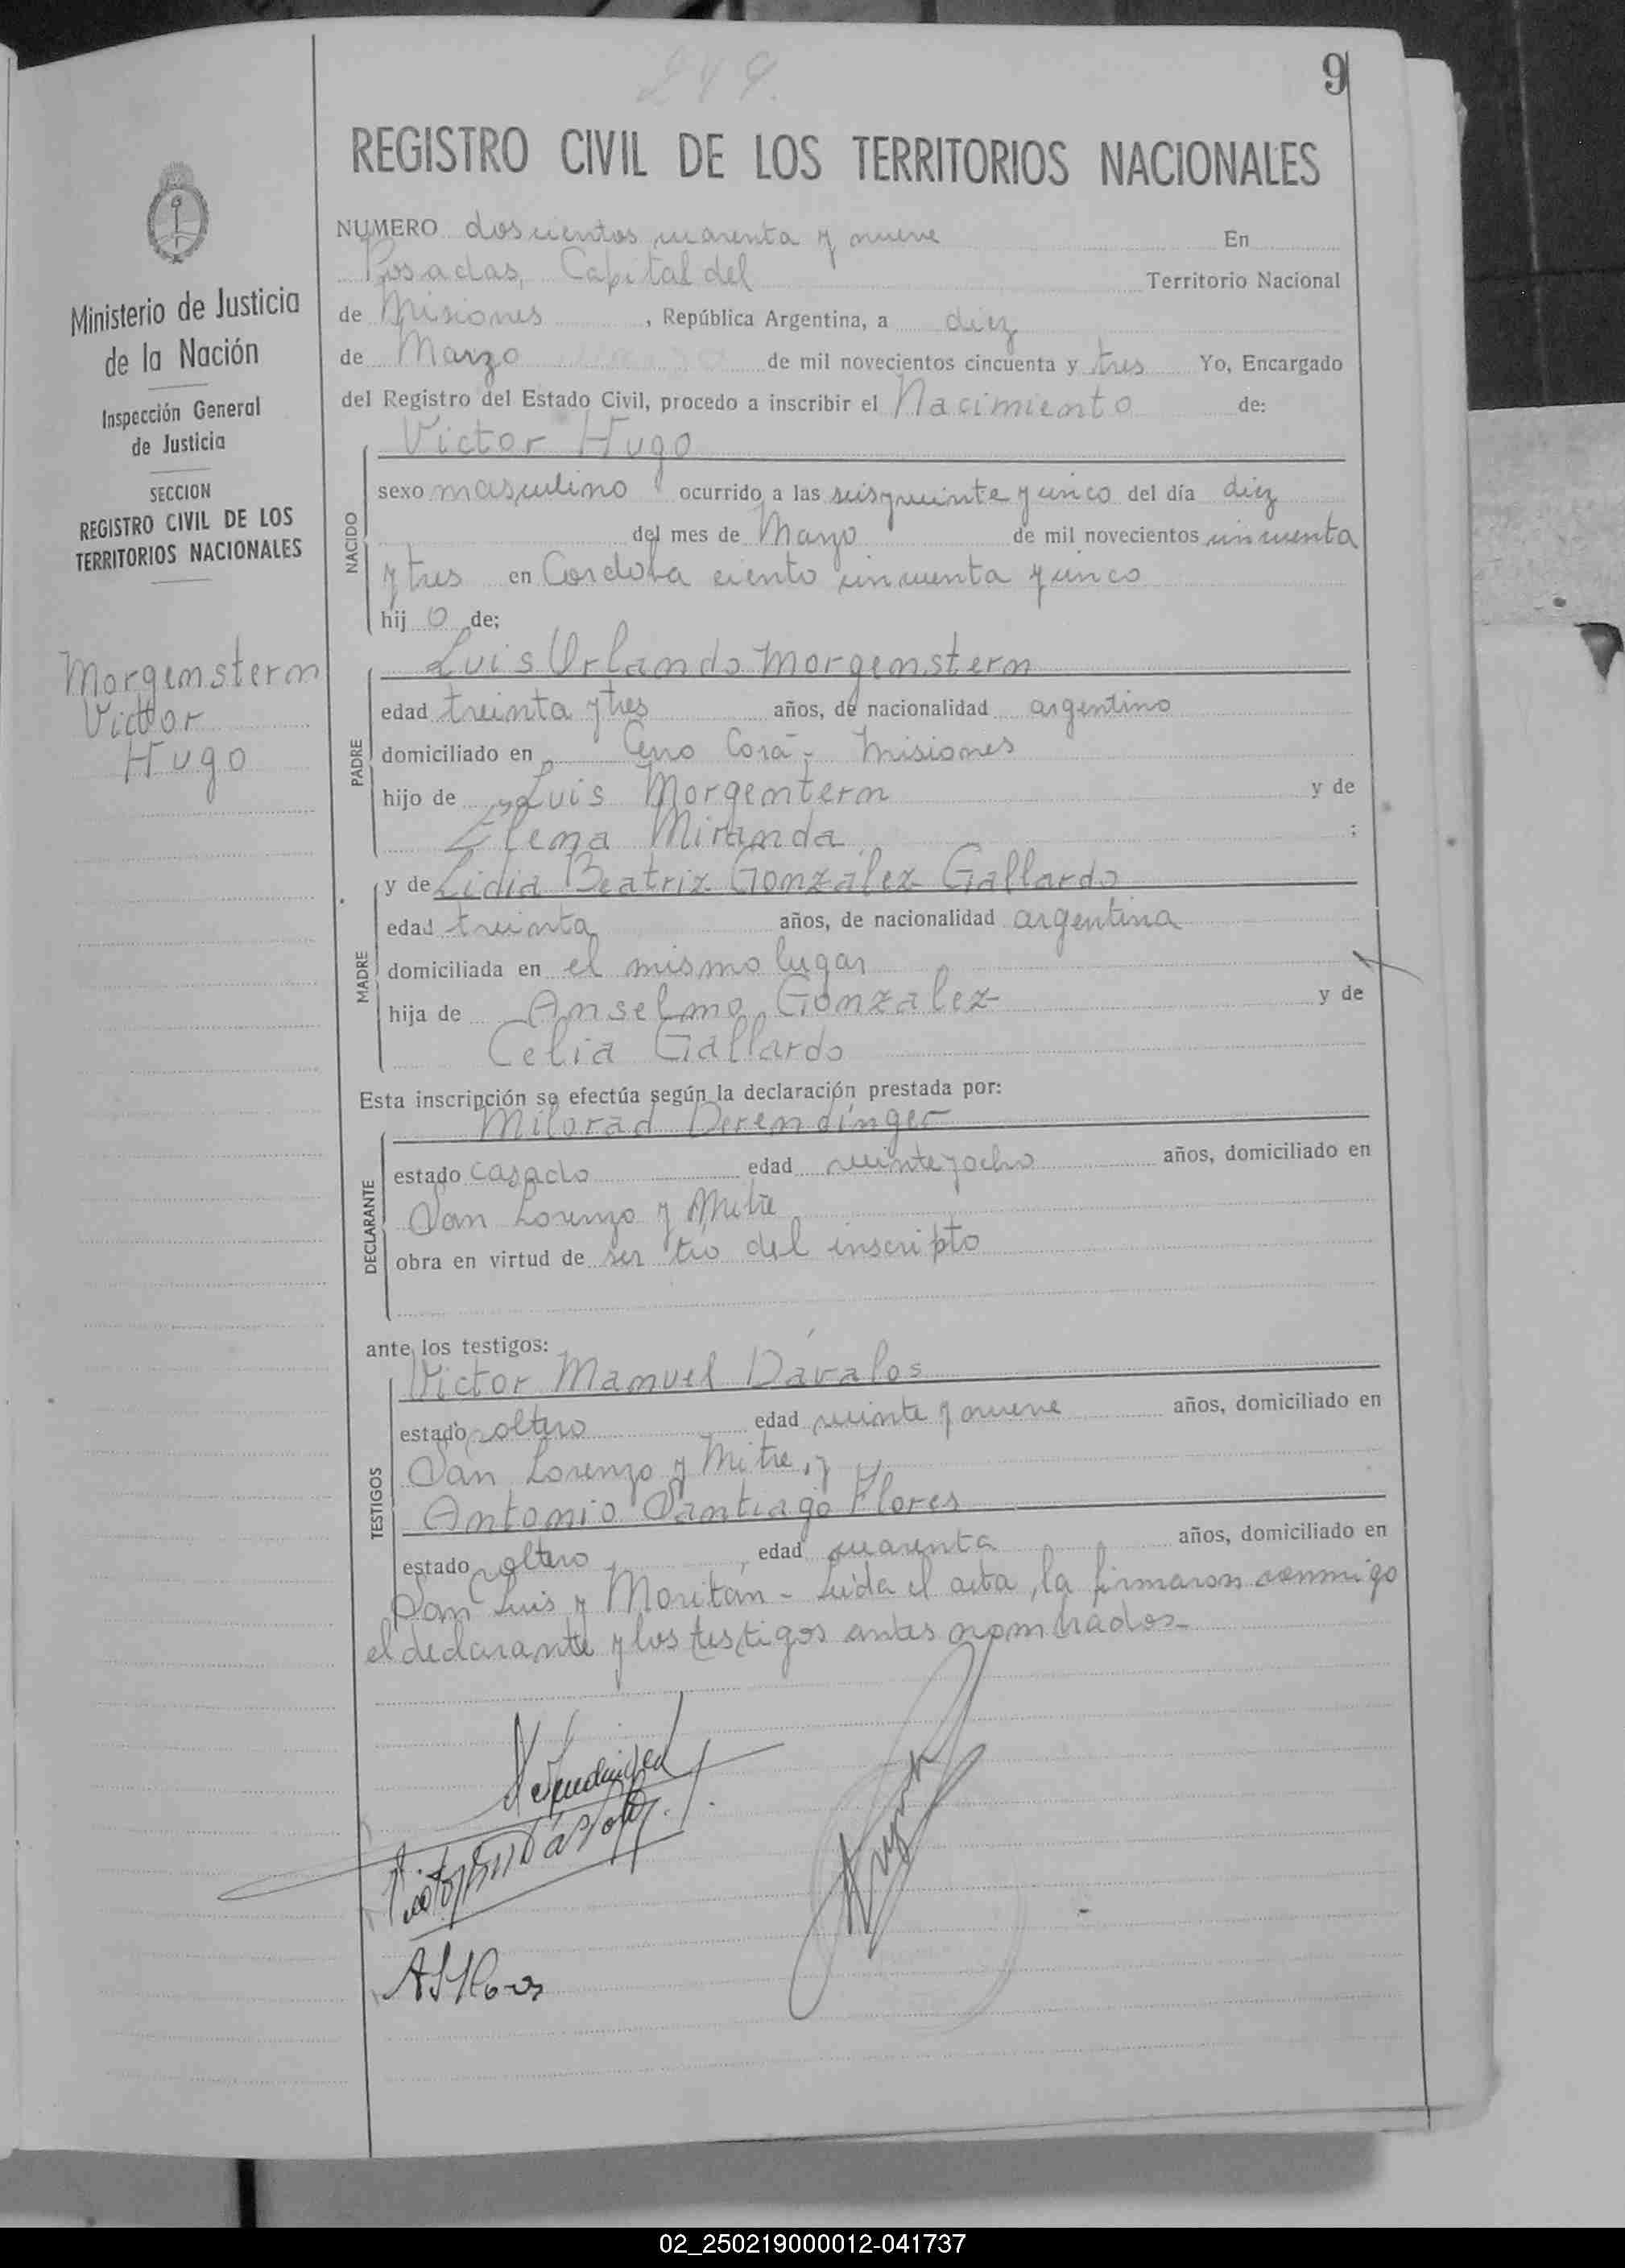 249.
9
REGISTRO CIVIL DE LOS TERRITORIOS NACIONALES
Ministerio de Justicia
de la Nación
Inspección General
de Justicia
SECCION
REGISTRO CIVIL DE LOS
TERRITORIOS NACIONALES
Morgenstern
Victor
Hugo
NUMERO doscientos cuarenta y nueve En
Posadas, Capital del Territorio Nacional
de Misiones, República Argentina, a diez
de Marzo de mil novecientos cincuenta y tres Yo, Encargado
del Registro del Estado Civil, procedo a inscribir el Nacimiento de:
NACIDO
Victor Hugo
sexo masculino ocurrido a las seis y veinte y cinco del día diez
del mes de Marzo de mil novecientos cincuenta
y tres en Cordoba ciento cincuenta y cinco
hij o de;
PADRE
Luis Orlando Morgenstern
edad treinta y tres años, de nacionalidad argentino
domiciliado en Cerro Corá - Misiones
hijo de Luis Morgentern y de
Elena Miranda ;
MADRE
y de Lidia Beatriz Gonzalez Gallardo
edad treinta años, de nacionalidad argentina
domiciliada en el mismo lugar
hija de Anselmo Gonzalez y de
Celia Gallardo
Esta inscripción se efectúa según la declaración prestada por:
DECLARANTE
Milorad Derendinger
estado casado edad veinte y ocho años, domiciliado en
San Lorenzo y Mitre
obra en virtud de ser tío del inscripto
ante los testigos:
TESTIGOS
Victor Manuel Dávalos
estado soltero edad veinte y nueve años, domiciliado en
San Lorenzo y Mitre, y
Antonio Santiago Flores
estado soltero, edad cuarenta años, domiciliado en
San Luis y Moritán - Leída el acta, la firmaron conmigo
el declarante y los testigos antes nombrados-
02_250219000012-041737